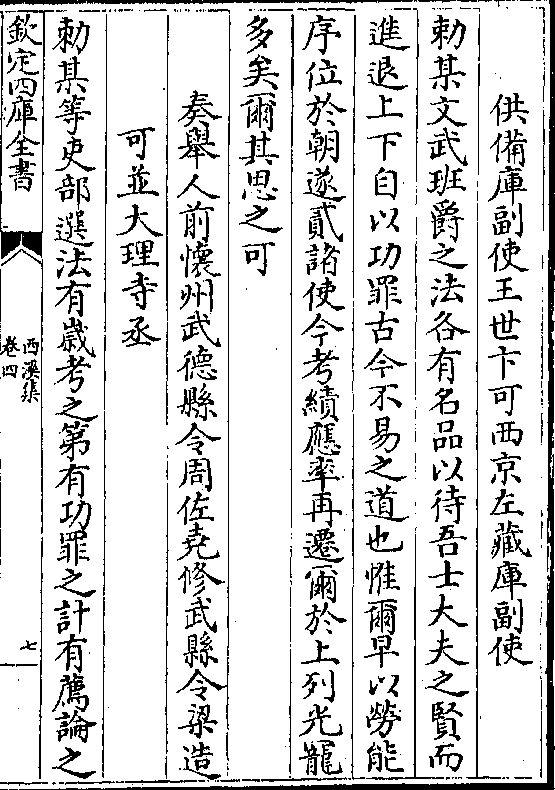 供備庫副使王世卞可西京左藏庫副使
勅某文武班爵之法各有名品以待吾士大夫之賢而
進退上下自以功罪古今不易之道也惟爾早以勞能
序位於朝遂貳諸使今考績應率再遷爾於上列光寵
多矣爾其思之可
奏舉人前懷州武德縣令周佐堯修武縣令梁造
可並大理寺丞
勅某等吏部選法有歲考之第有功罪之計有薦論之
欽定四庫全書
西溪集
卷四
七